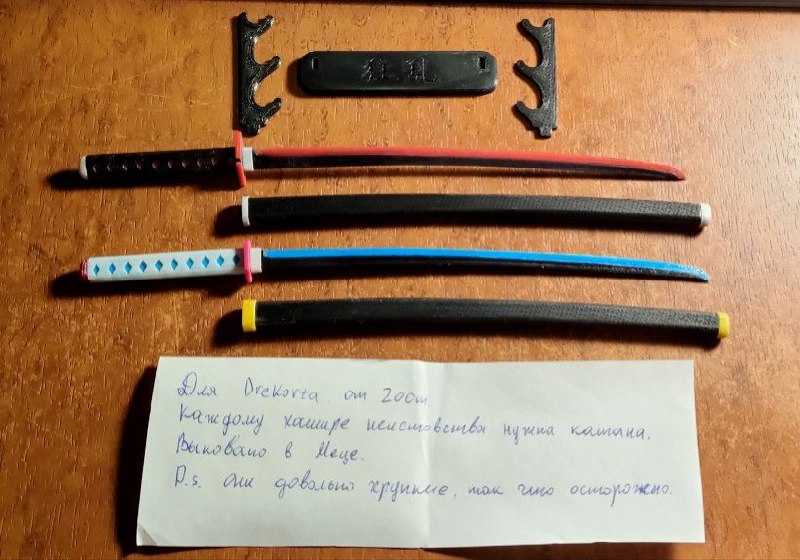 狂乱
Для Drekorza от Zoom
Каждому хашире неистовства нужна катана.
Выковано в Меце.
P.s. они довольно хрупкие, так что осторожно.